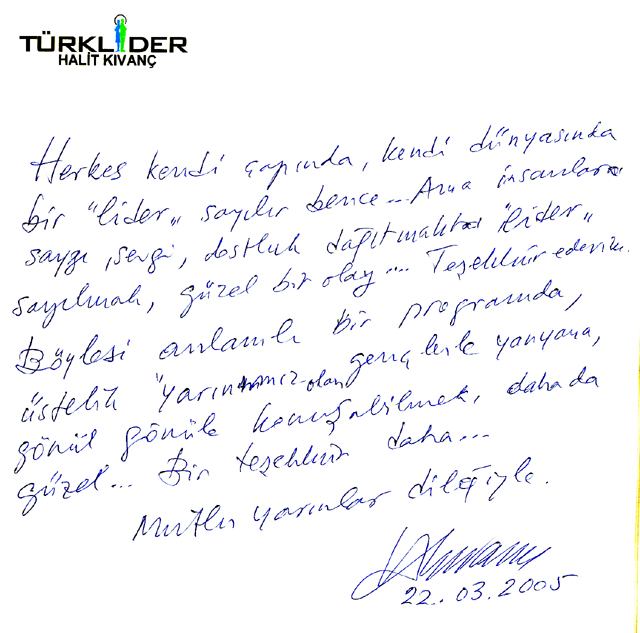 TÜRKLİDER
HALİT KIVANÇ
Herkes kendi çapında, kendi dünyasında
bir "lider" sayılır bence... Ama insanlara
saygı, sevgi, dostluk dağıtmakta "lider"
sayılmak, güzel bir olay... Teşekkür ederim.
Böylesi anlamlı bir programda,
üstelik "yarın"ımız olan gençlerle yanyana,
gönül gönüle konuşabilmek, daha da
güzel... Bir teşekkür daha...
Mutlu yarınlar dileğiyle.
22.03.2005